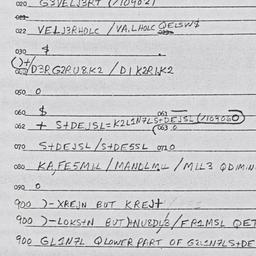 020 G3VELJ3RT (/109021
022 VELJ3RHOLC /VA.LHOLC QELSW$
030 $ .
()+/D3RG2RU8K2 / D1K2R1K2
050 0
060 $
062 + S+DEJSL=K2L1N7LS+DEJSL (/109060)
063 0
070 S+DEJSL /S+DE5SL 071 0
080 KA,FE5M1L / MANDLM1L / M1L3 QDIMIN
090 0
900 )-XREJN BUT KREJ+
900 )-LOKS+N BUT)+NU8DL3/FP1M5L QET
900 GL1N7L QLOWER PART OF G2L1N7LS+DE